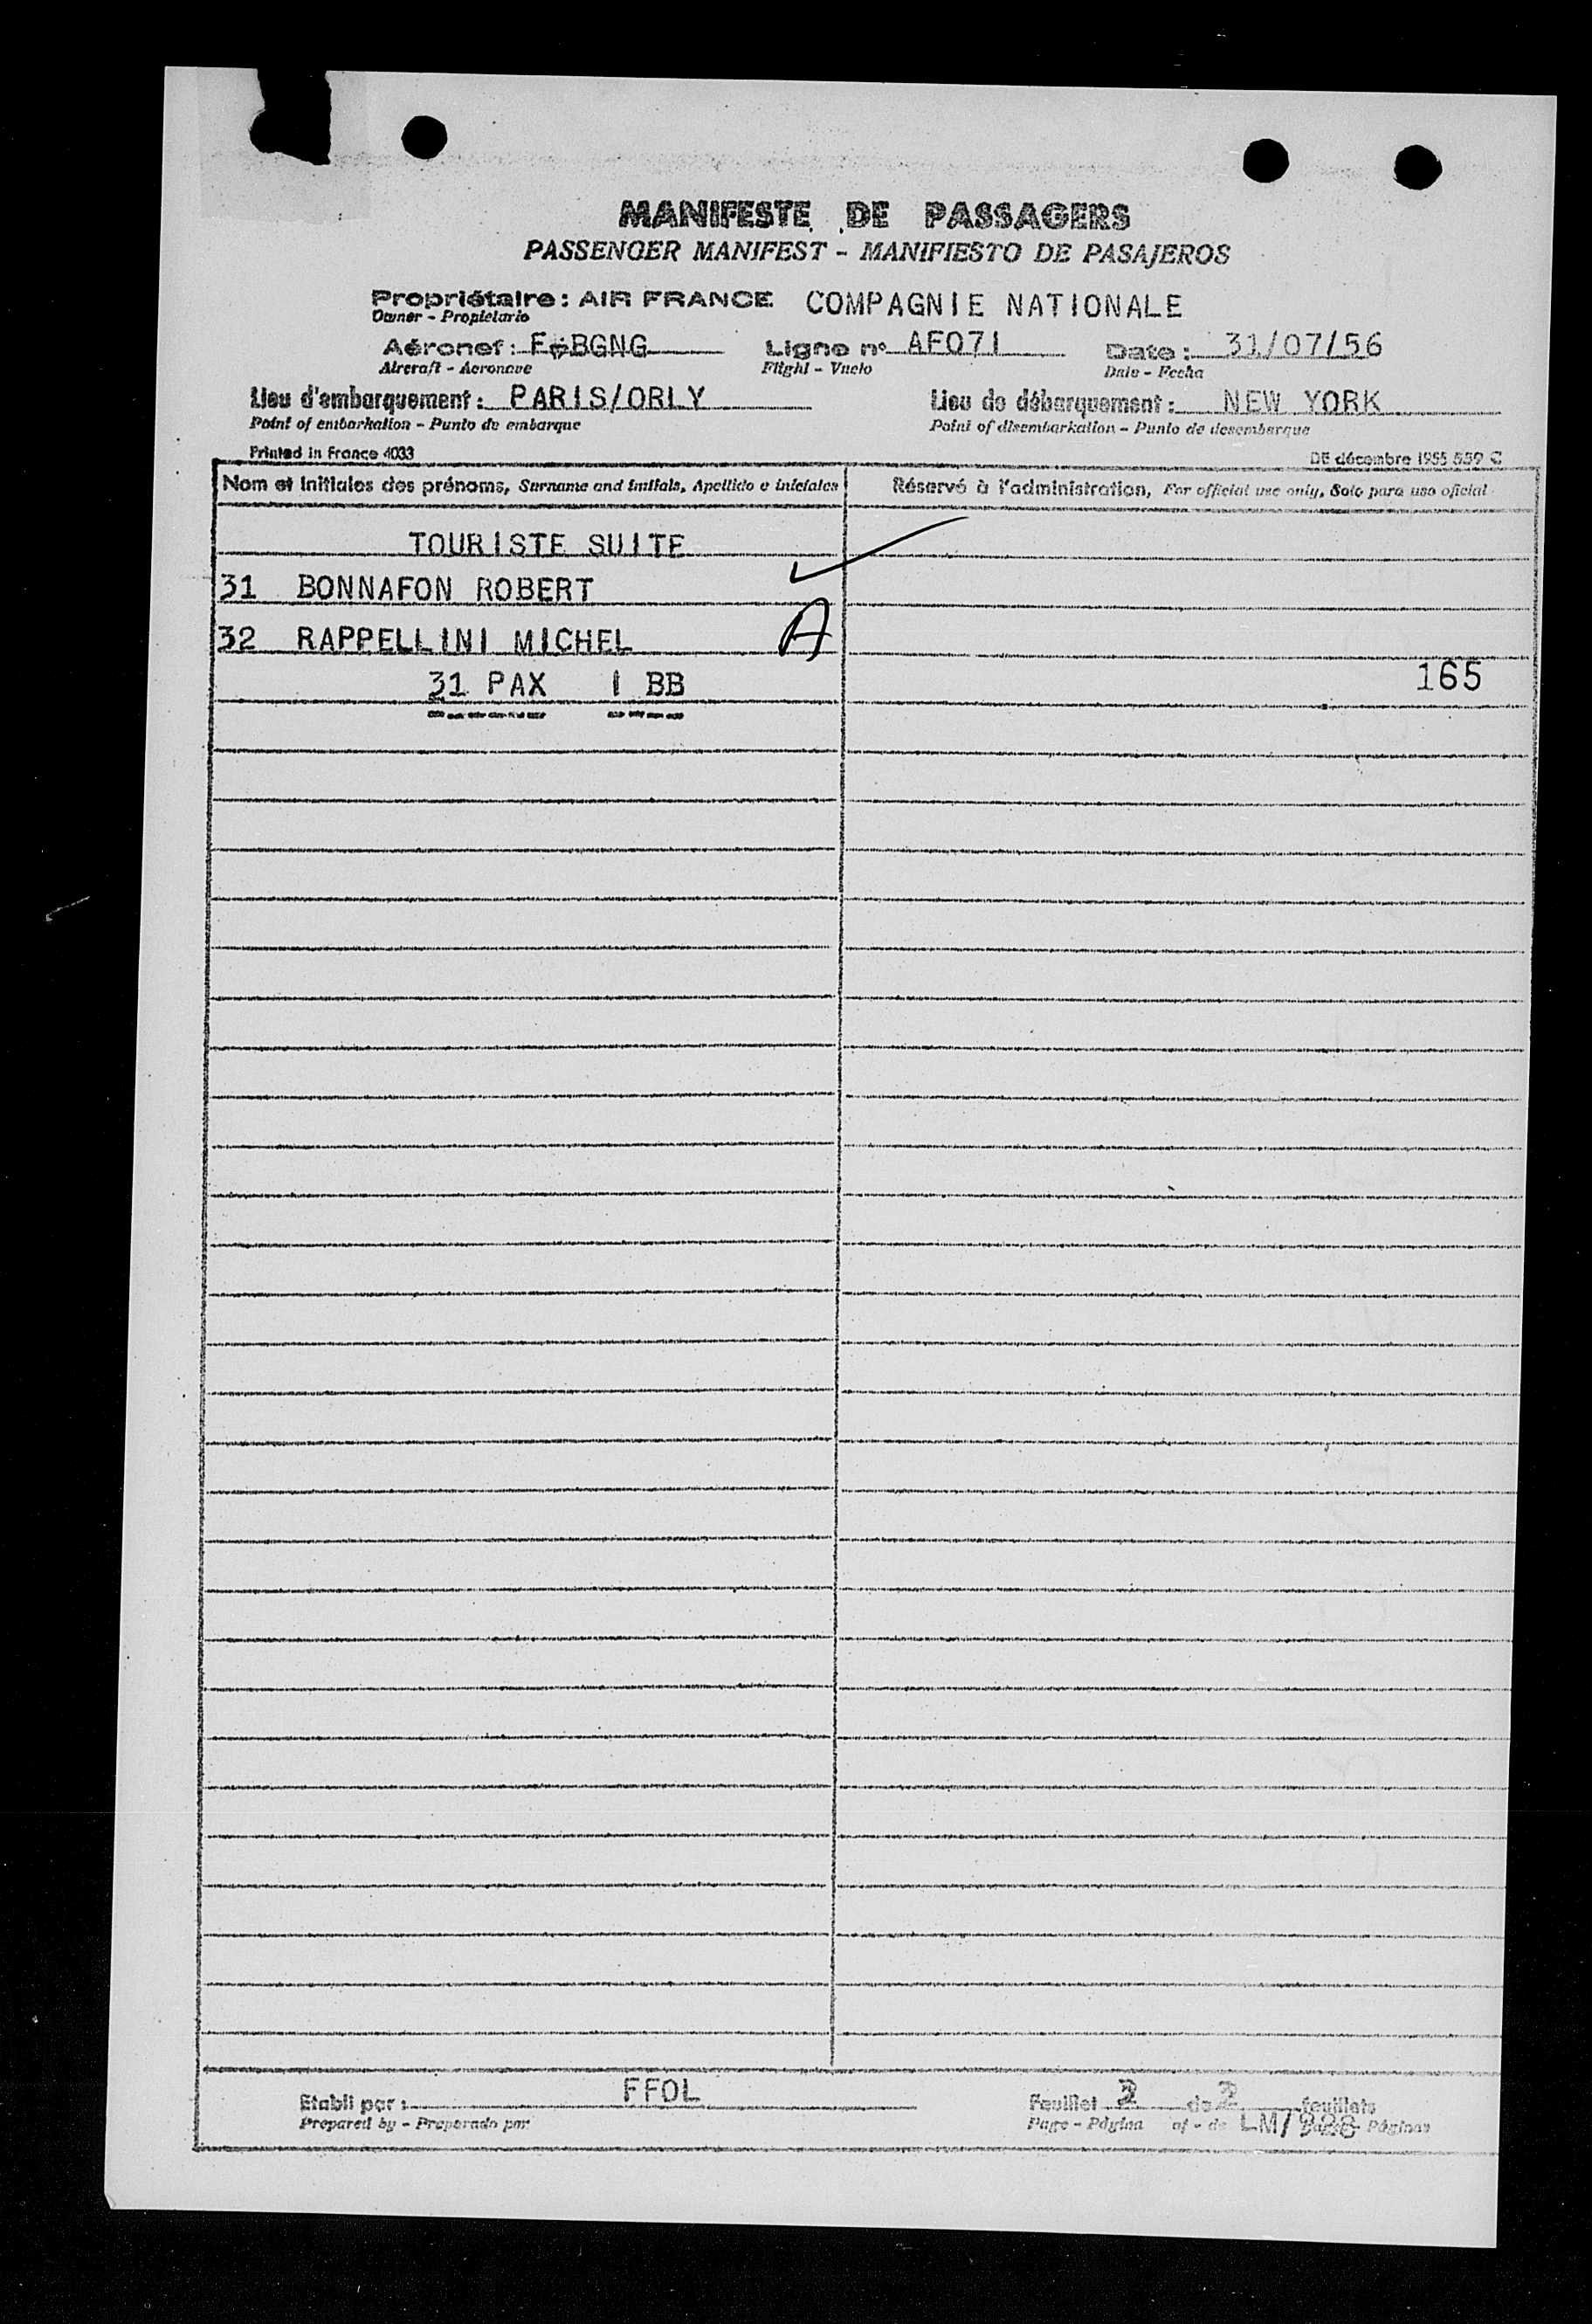 MANIFESTE DE PASSAGERS
PASSENGER MANIFEST - MANIFIESTO DE PASAJEROS
Propriétaire : AIR FRANCE COMPAGNIE NATIONALE
Owner - Propietario
Aéronef : F-BGNG Ligne n° AF071 Date : 31/07/56
Aircraft - Aeronave Flight - Vuelo Date - Fecha
Lieu d'embarquement : PARIS/ORLY Lieu de débarquement : NEW YORK
Point of embarkation - Punto de embarque Point of disembarkation - Punto de desembarque
Printed in France 4033 DE décembre 1955 559 C
Nom et initiales des prénoms, Surname and initials, Apellido e iniciales Réservé à l'administration, For official use only, Solo para uso oficial
TOURISTE SUITE
31 BONNAFON ROBERT
32 RAPPELLINI MICHEL A
31 PAX 1 BB 165
Etabli par : FFOL Feuillet de 2 feuillets
Prepared by - Preparado por Page - Página of - de LM/ Páginas